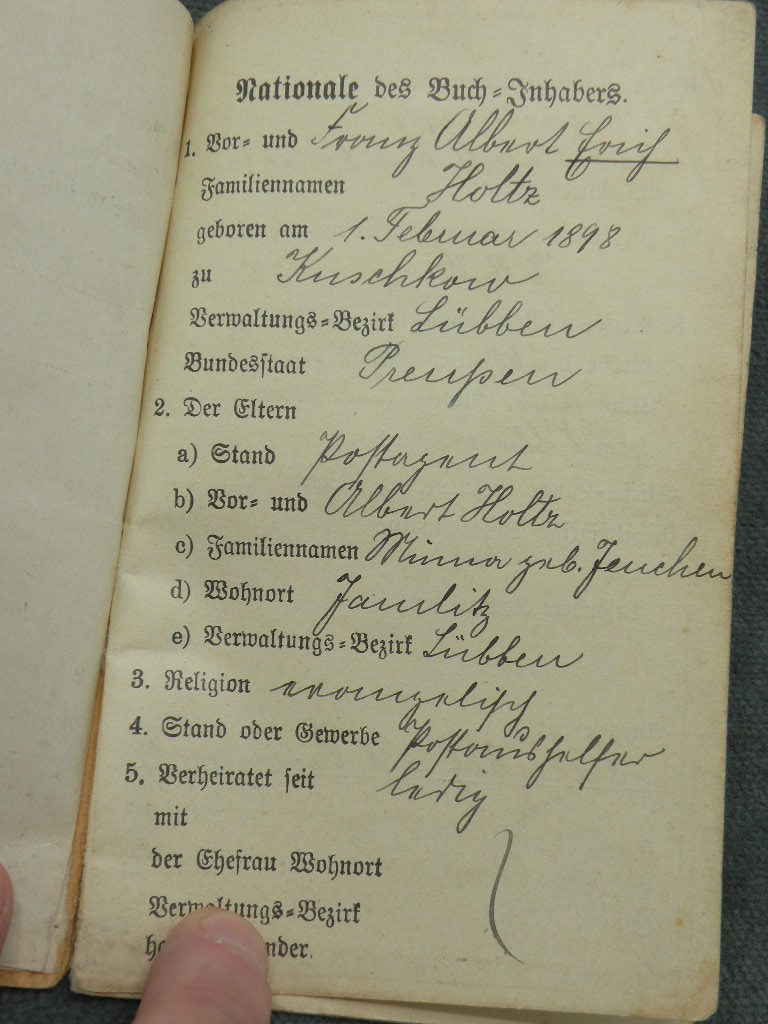 Nationale des Buch-Inhabers.
1. Vor- und Franz Albert Erich
Familiennamen Holtz
geboren am 1. Februar 1898
zu Kuschkow
Verwaltungs-Bezirk Lübben
Bundesstaat Preußen
2. Der Eltern
a) Stand Postagent
b) Vor- und Albert Holtz
c) Familiennamen Minna geb. Jenchen
d) Wohnort Jamlitz
e) Verwaltungs-Bezirk Lübben
3. Religion evangelisch
4. Stand oder Gewerbe Postaushelfer
5. Verheiratet seit ledig
mit
der Ehefrau Wohnort
Verwaltungs-Bezirk